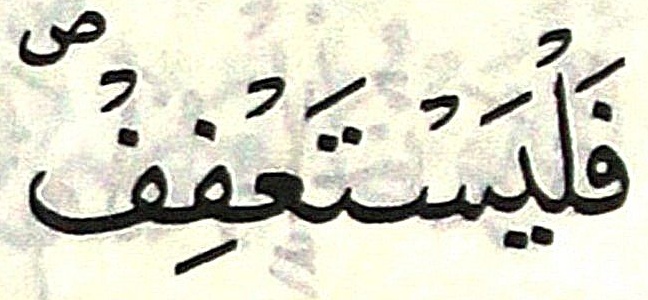 فَلْيَسْتَعْفِفْ ۖ ص